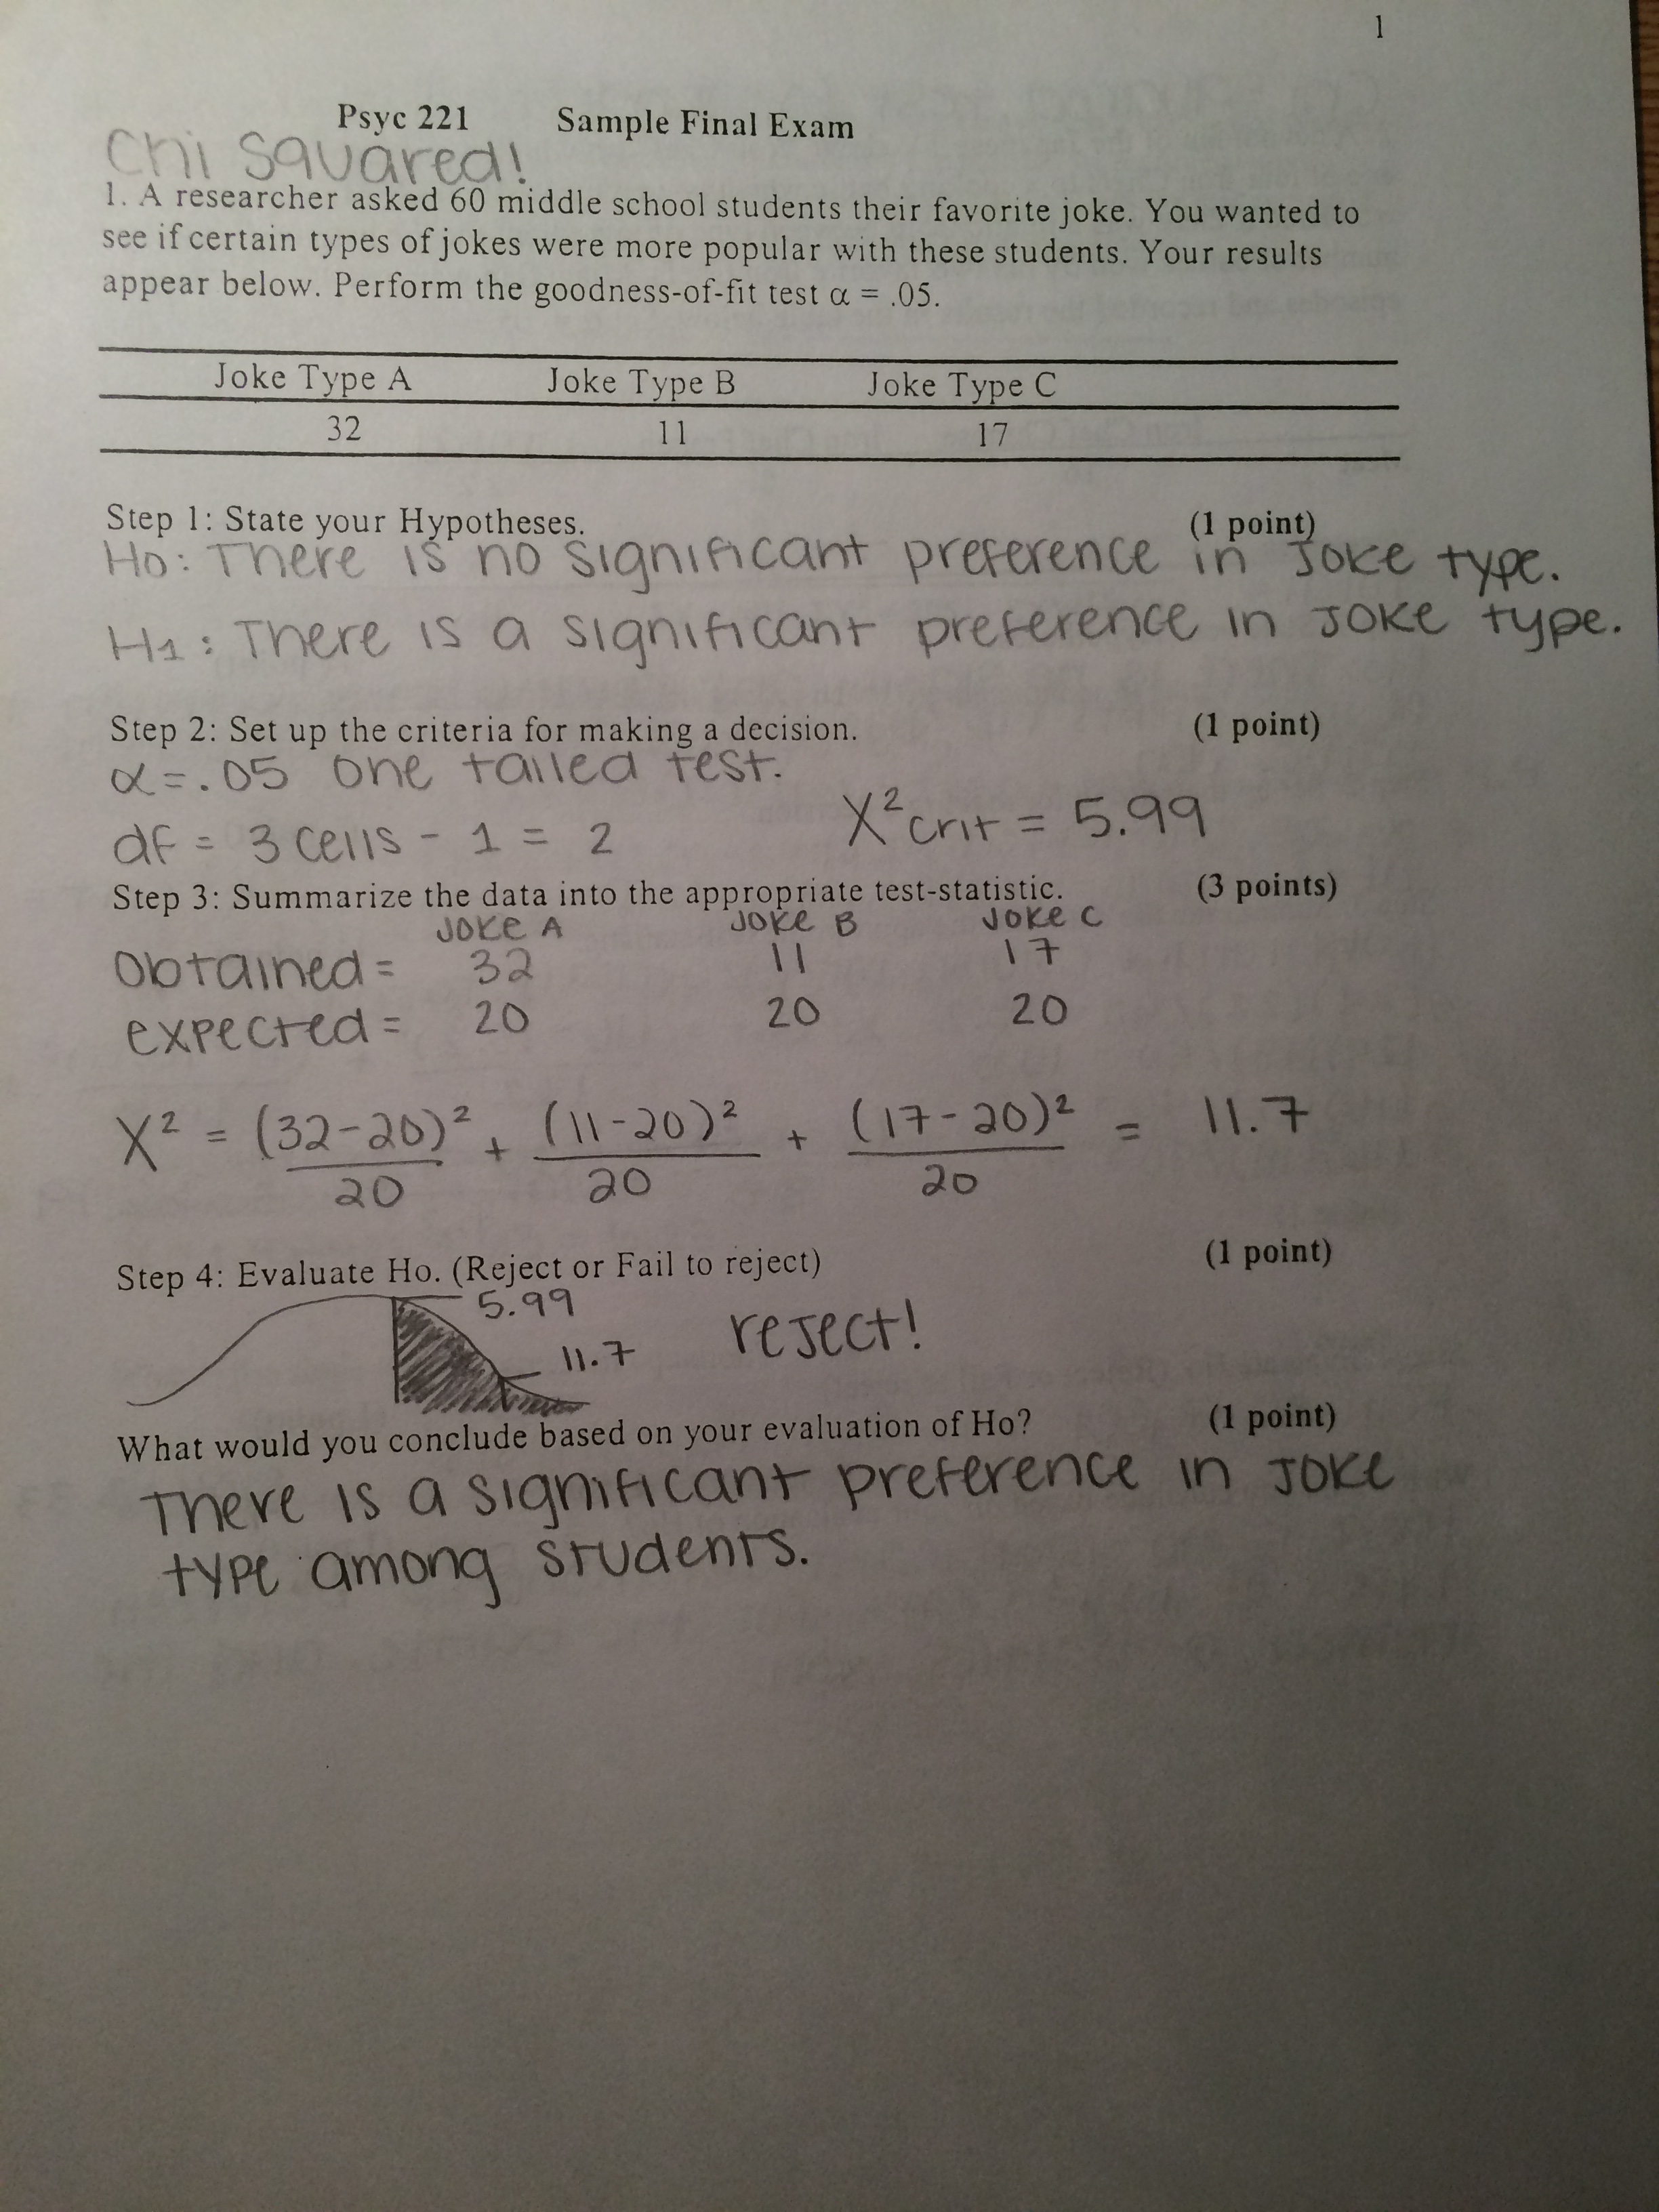 1
Psyc 221 Sample Final Exam
Chi squared!
1. A researcher asked 60 middle school students their favorite joke. You wanted to
see if certain types of jokes were more popular with these students. Your results
appear below. Perform the goodness-of-fit test α = .05.
Joke Type A Joke Type B Joke Type C
32 11 17
Step 1: State your Hypotheses. (1 point)
Ho: There is no significant preference in joke type.
H1: There is a significant preference in joke type.
Step 2: Set up the criteria for making a decision. (1 point)
α = .05 one tailed test.
df = 3 cells - 1 = 2 X²crit = 5.99
Step 3: Summarize the data into the appropriate test-statistic. (3 points)
Joke A Joke B Joke C
Obtained = 32 11 17
expected = 20 20 20
X² = (32-20)² + (11-20)² + (17-20)² = 11.7
20 20 20
Step 4: Evaluate Ho. (Reject or Fail to reject) (1 point)
5.99
11.7 reject!
What would you conclude based on your evaluation of Ho? (1 point)
There is a significant preference in joke
type among students.